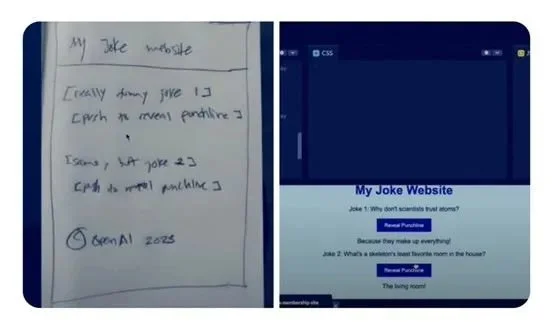 My Joke website
[really funny joke 1]
[push to reveal punchline]
[same, but joke 2]
[push to reveal punchline]
© OpenAI 2023
CSS
My Joke Website
Joke 1: Why don't scientists trust atoms?
Reveal Punchline
Because they make up everything!
Joke 2: What's a skeleton's least favorite room in the house?
Reveal Punchline
The living room!
membership-site